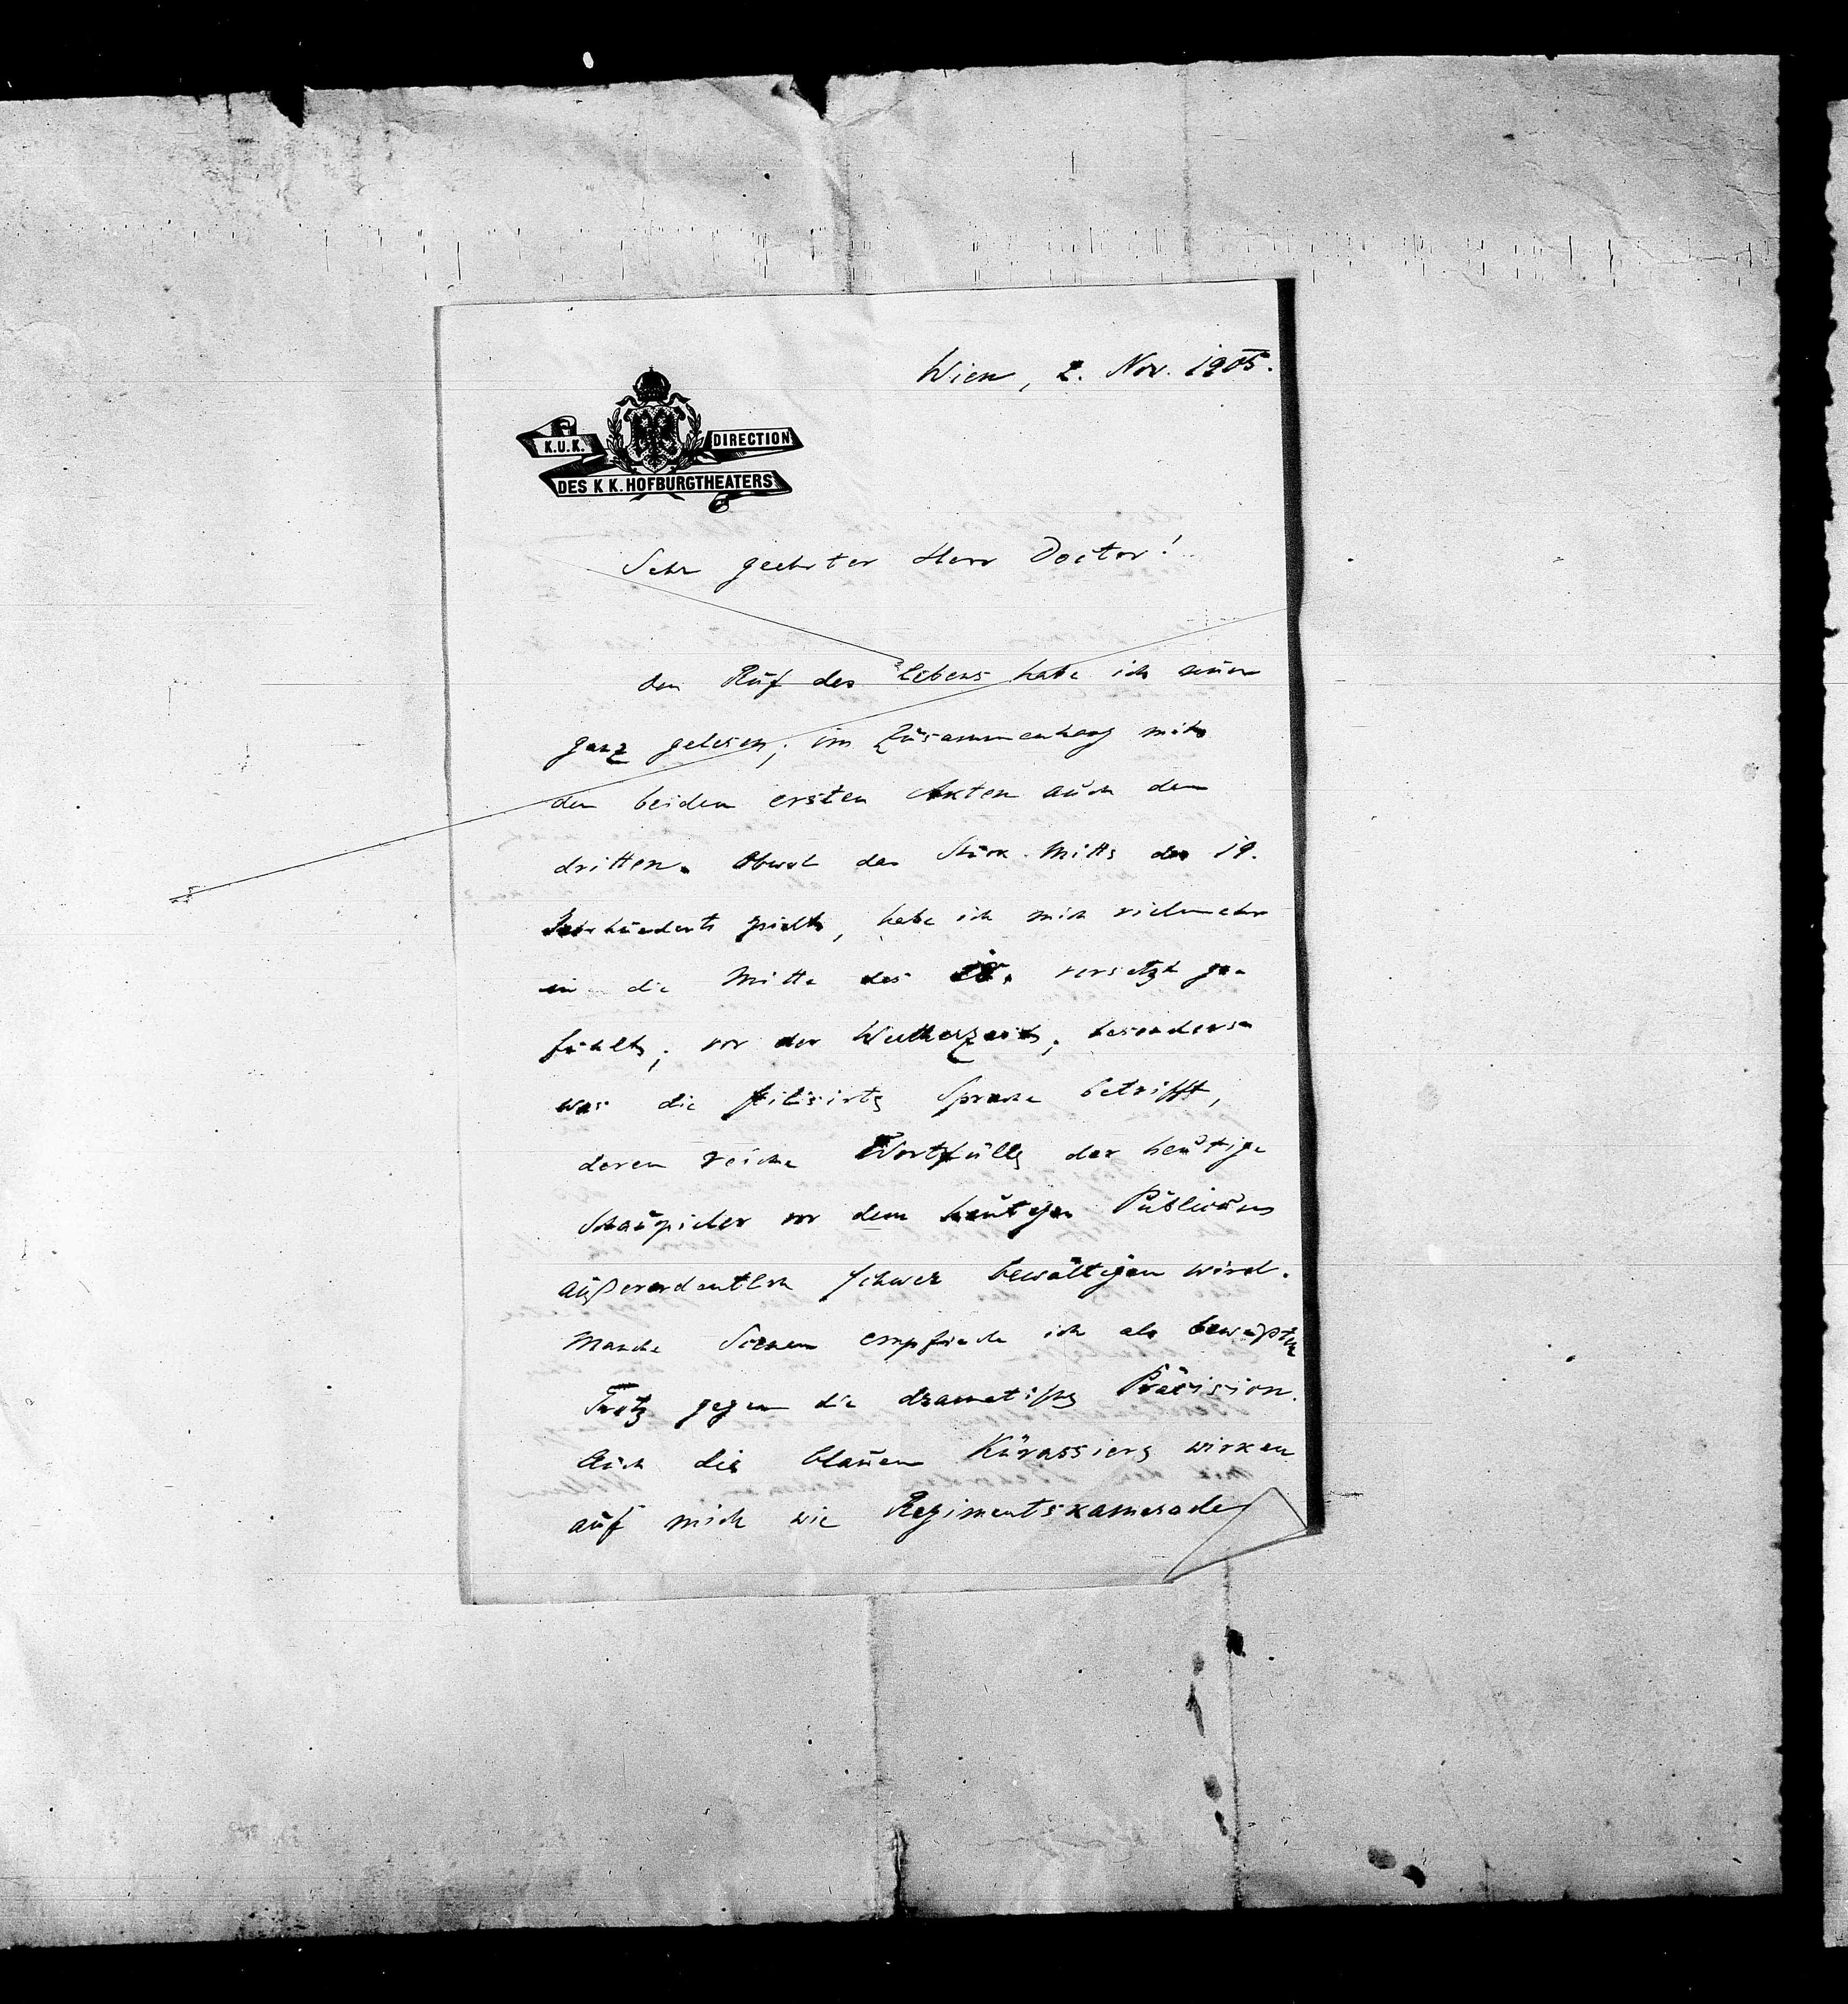 Wien, 2. Nov. 1905.
K.U.K. DIRECTION
DES K K. HOFBURGTHEATERS
Sehr geehrter Herr Doctor!
den Ruf des Lebens habe ich nun
ganz gelesen; im Zusammenhang mit
den beiden ersten Akten auch den
dritten. Obwol das Stück Mitte des 19.
Jahrhunderts spielt, habe ich mich vielmehr
in die Mitte des 18. versetzt ge-
fühlt; vor der Wertherzeit; besonders
was die stilisirte Sprache betrifft,
deren reiche Wortfülle der heutige
Schauspieler vor dem heutigen Publicum
außerordentlich schwer bewältigen wird.
Manche Scenen empfinde ich als bewußten
Trotz gegen die dramatische Präcision.
Auch die blauen Kürassiere wirken
auf mich wie Regimentskamerade